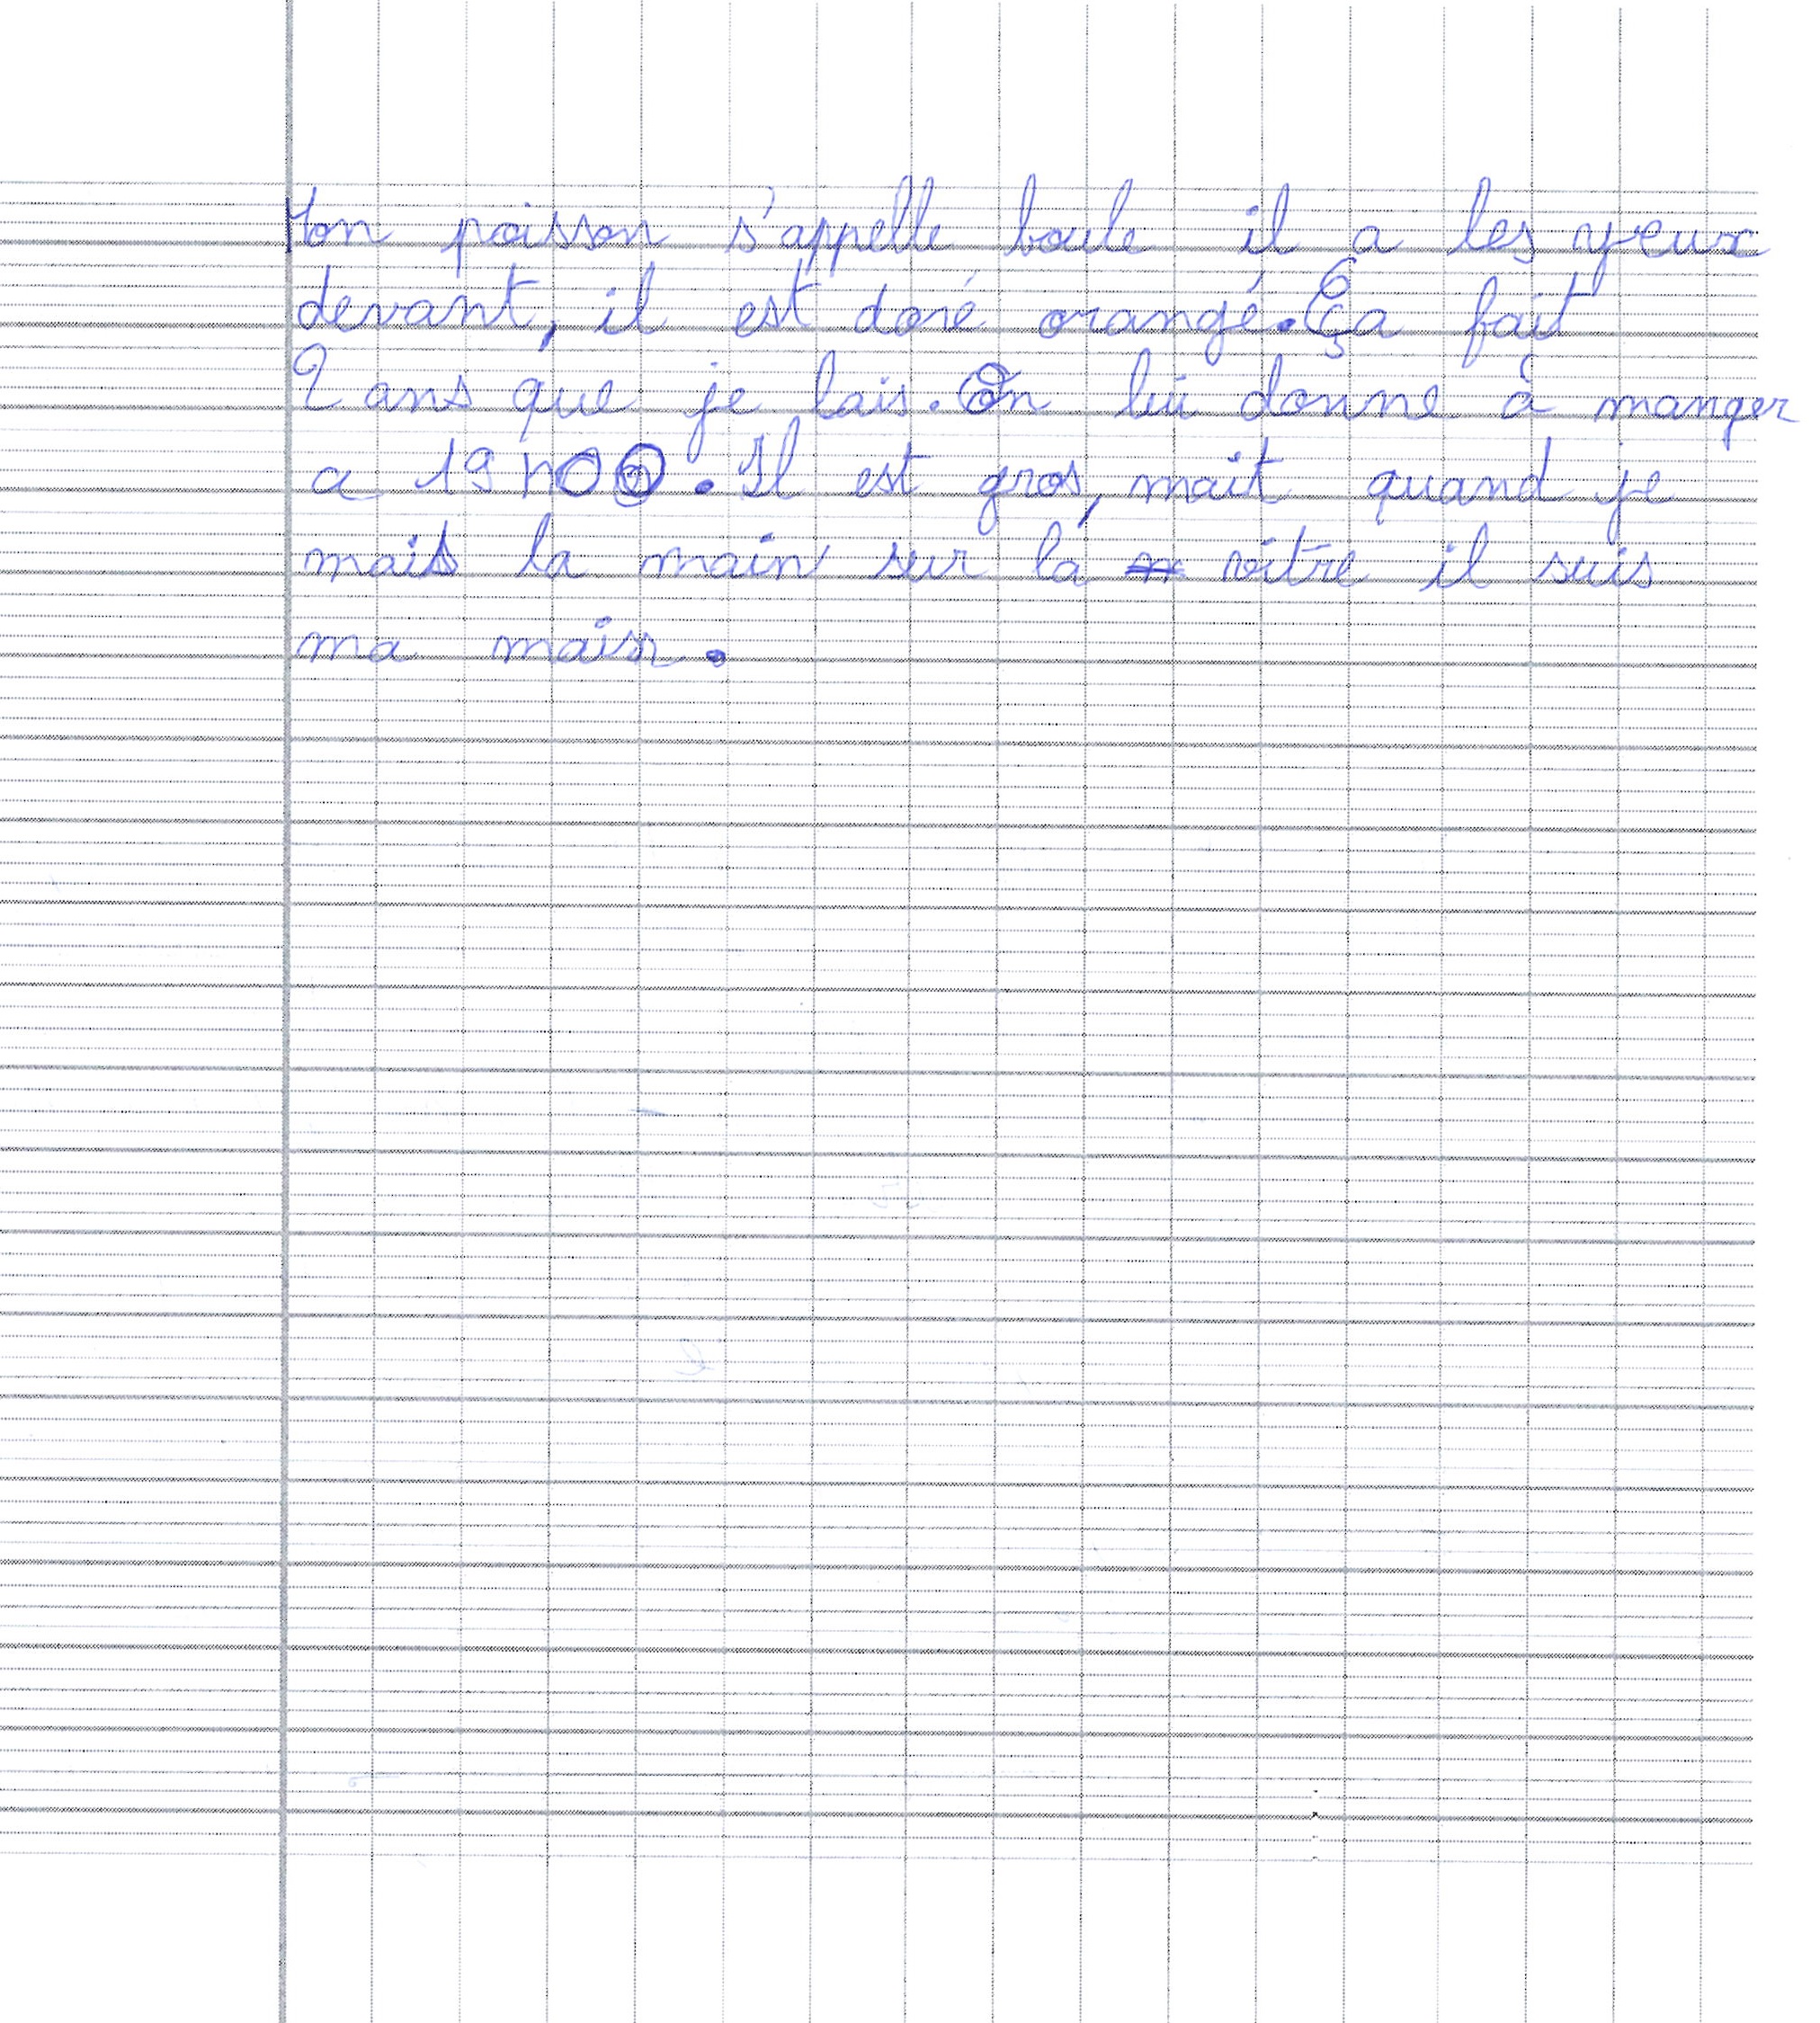 Mon poisson s'appelle boule il a les yeux
devant, il est doré orangé. Ça fait
2 ans que je lais. On lui donne à manger
a 19 h00. Il est gros, mait quand je
mais la main sur la vitre il suis
ma main.